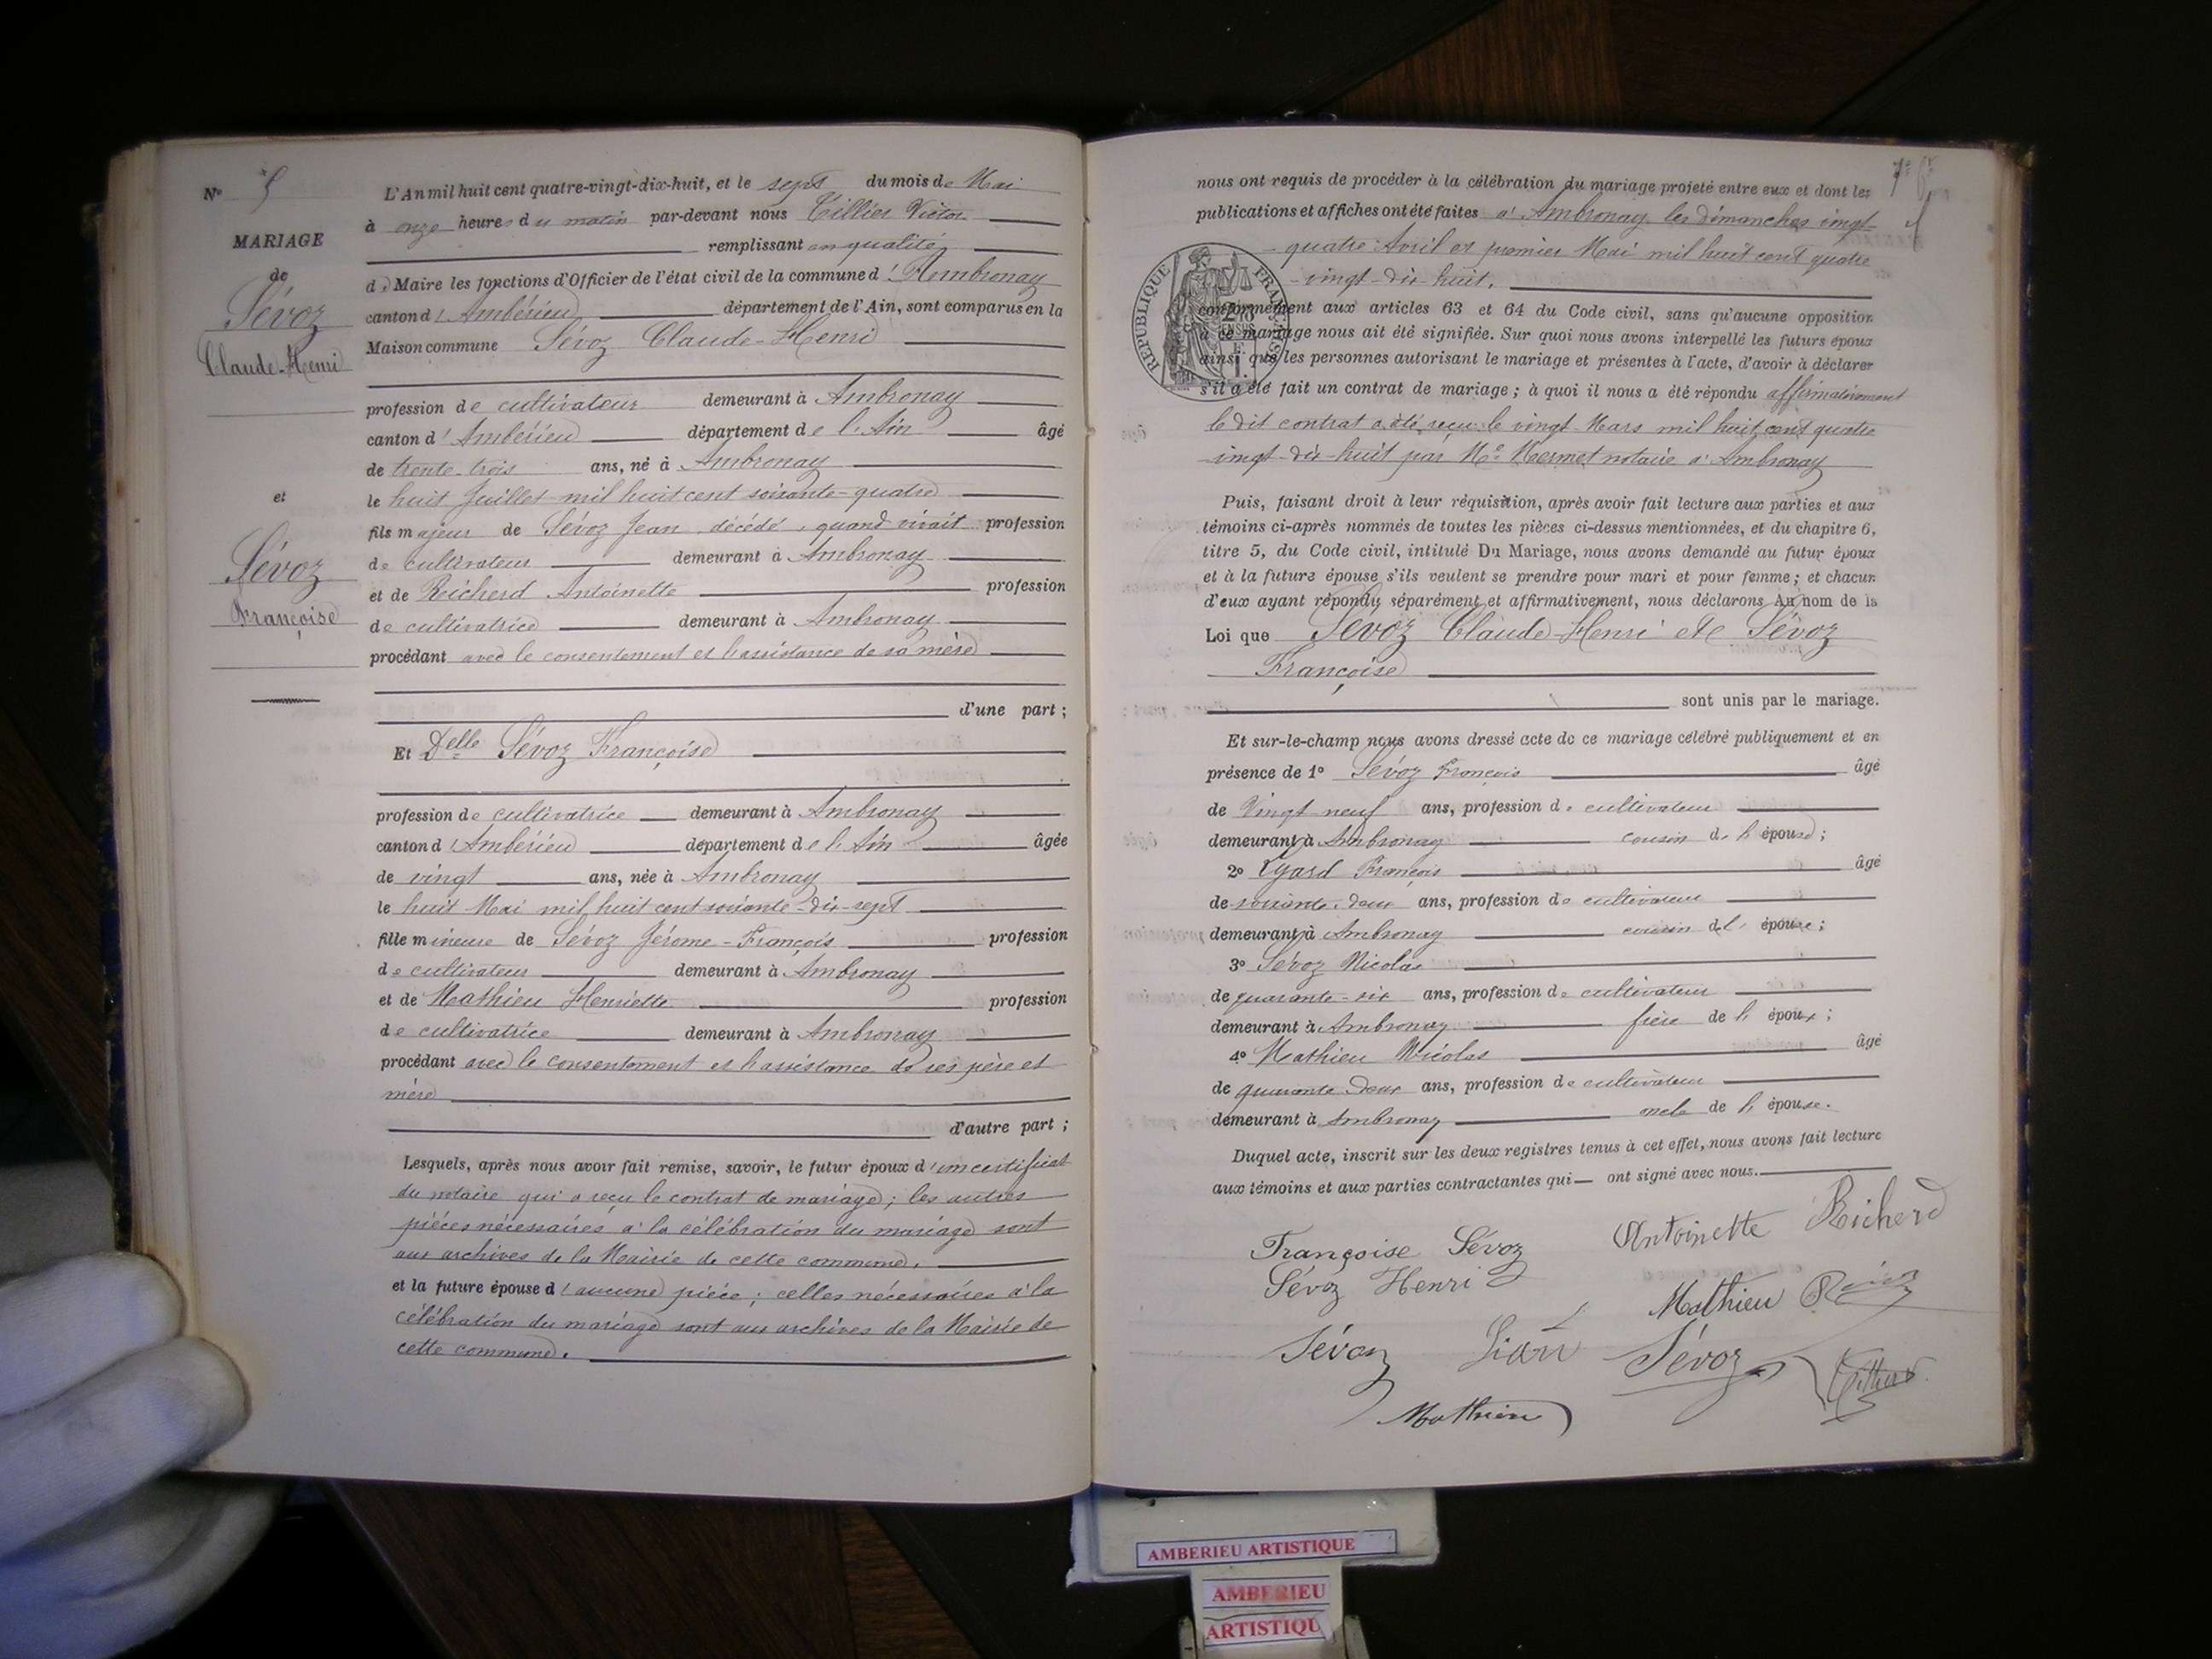 N° 5
MARIAGE
de
Sévoz
Claude-Henri
et
Sévoz
Françoise
L'An mil huit cent quatre-vingt-dix-huit, et le sept du mois de Mai
à onze heures du matin par-devant nous Tillier Victor
remplissant en qualité
de Maire les fonctions d'Officier de l'état civil de la commune d'Ambronay
canton d'Ambérieu département de l'Ain, sont comparus en la
Maison commune Sévoz Claude-Henri
profession de cultivateur demeurant à Ambronay
canton d'Ambérieu département de l'Ain âgé
de trente-trois ans, né à Ambronay
le huit Juillet mil huit cent soixante-quatre
fils majeur de Sévoz Jean, décédé, quand vivait profession
de cultivateur demeurant à Ambronay
et de Reicherd Antoinette profession
de cultivatrice demeurant à Ambronay
procédant avec le consentement et l'assistance de sa mère
d'une part ;
Et Delle Sévoz Françoise
profession de cultivatrice demeurant à Ambronay
canton d'Ambérieu département de l'Ain âgée
de vingt ans, née à Ambronay
le huit Mai mil huit cent soixante-dix-sept
fille mineure de Sévoz Jérome-François profession
de cultivateur demeurant à Ambronay
et de Mathieu Henriette profession
de cultivatrice demeurant à Ambronay
procédant avec le consentement et l'assistance de ses père et
mère
d'autre part ;
Lesquels, après nous avoir fait remise, savoir, le futur époux d'un certificat
du notaire qui a reçu le contrat de mariage; les autres
pièces nécessaires à la célébration du mariage sont
aux archives de la Mairie de cette commune.
et la future épouse d'aucune pièce; celles nécessaires à la
célébration du mariage sont aux archives de la Mairie de
cette commune.
7e
nous ont requis de procéder à la célébration du mariage projeté entre eux et dont les
publications et affiches ont été faites à Ambronay les dimanches vingt-
quatre Avril et premier Mai mil huit cent quatre
-vingt-dix-huit.
REPUBLIQUE FRANÇAISE
conformément aux articles 63 et 64 du Code civil, sans qu'aucune opposition
à ce mariage nous ait été signifiée. Sur quoi nous avons interpellé les futurs époux
ainsi que les personnes autorisant le mariage et présentes à l'acte, d'avoir à déclarer
s'il a été fait un contrat de mariage ; à quoi il nous a été répondu affirmativement
le dit contrat a été reçu le vingt Mars mil huit cent quatre
vingt-dix-huit par Me Mermet notaire à Ambronay
Puis, faisant droit à leur réquisition, après avoir fait lecture aux parties et aux
témoins ci-après nommés de toutes les pièces ci-dessus mentionnées, et du chapitre 6,
titre 5, du Code civil, intitulé Du Mariage, nous avons demandé au futur époux
et à la future épouse s'ils veulent se prendre pour mari et pour femme ; et chacun
d'eux ayant répondu séparément et affirmativement, nous déclarons Au nom de la
Loi que Sévoz Claude-Henri et Sévoz
Françoise
sont unis par le mariage.
Et sur-le-champ nous avons dressé acte de ce mariage célébré publiquement et en
présence de 1° Sévoz François âgé
de vingt neuf ans, profession de cultivateur
demeurant à Ambronay cousin de l'épouse ;
2° François âgé
de soixante-deux ans, profession de cultivateur
demeurant à Ambronay cousin de l'épouse ;
3° Sévoz Nicolas
de quarante-six ans, profession de cultivateur
demeurant à Ambronay frère de l'époux ;
4° Mathieu Nicolas âgé
de quarante deux ans, profession de cultivateur
demeurant à Ambronay oncle de l'épouse.
Duquel acte, inscrit sur les deux registres tenus à cet effet, nous avons fait lecture
aux témoins et aux parties contractantes qui ont signé avec nous.
Françoise Sévoz Antoinette Richerd
Sévoz Henri Mathieu
Sévoz Sévoz
Mathieu
AMBERIEU ARTISTIQUE
AMBERIEU
ARTISTIQU